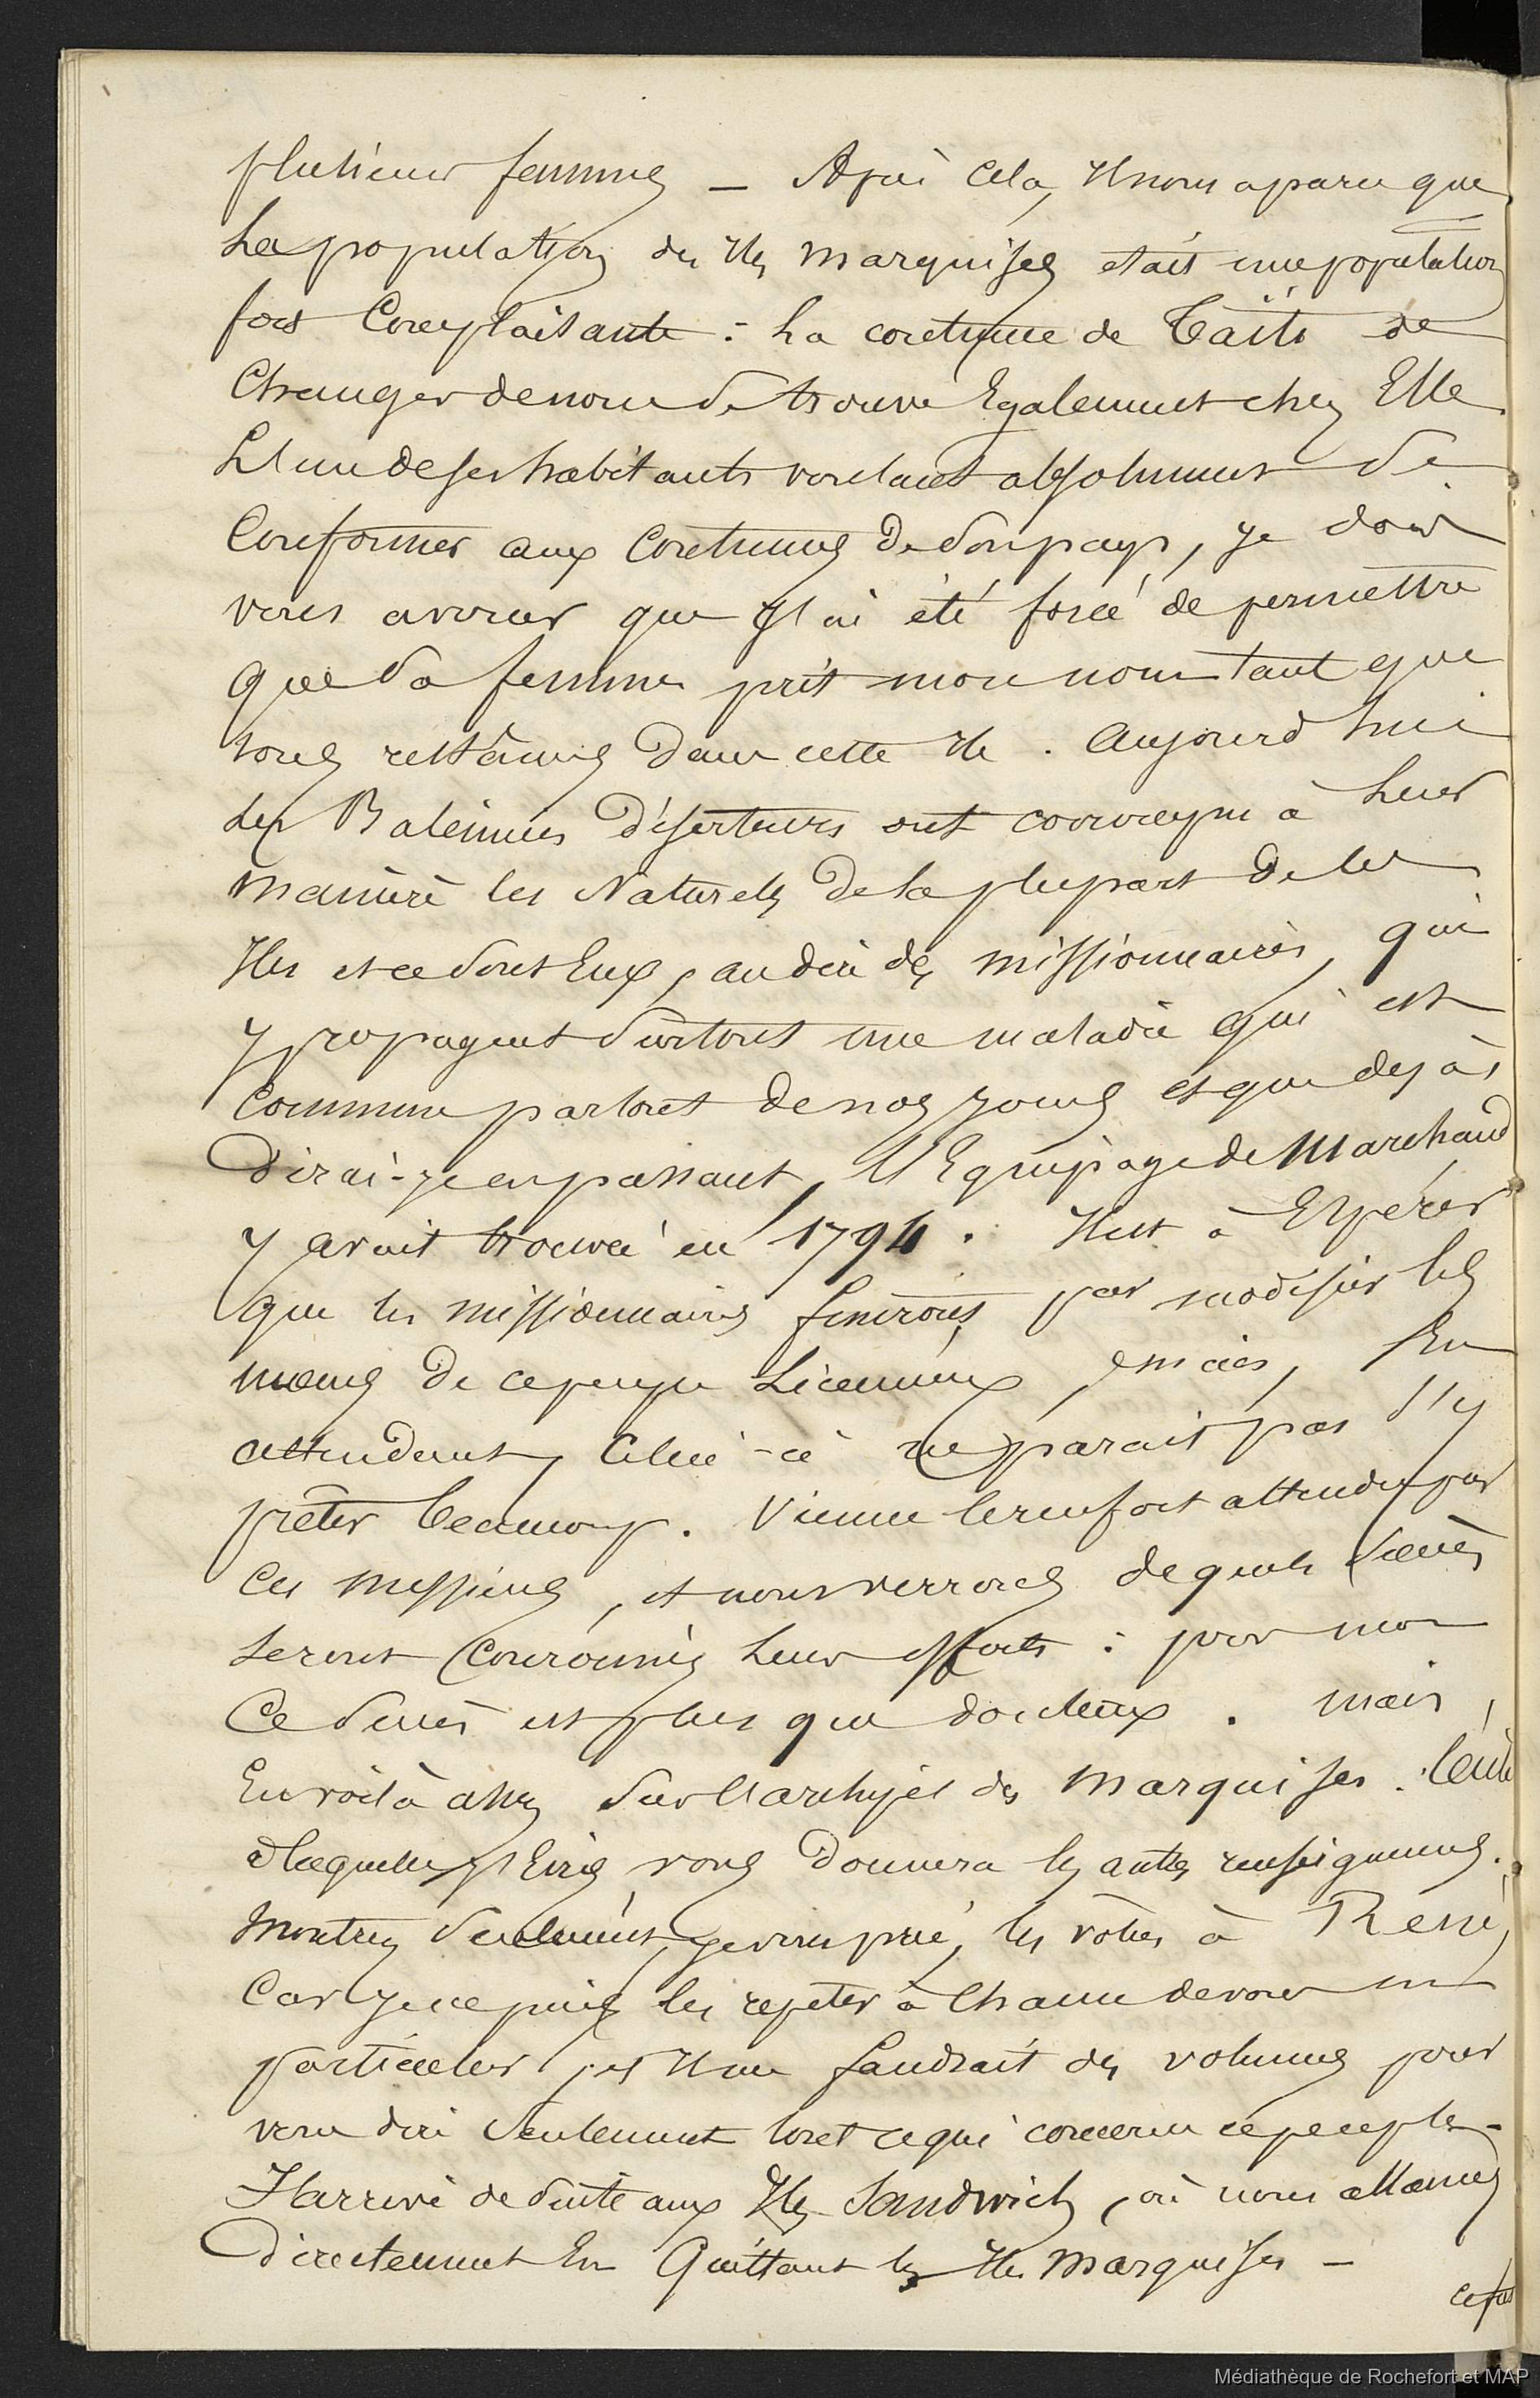 plusieurs femmes — Après Cela, Il nous a paru que
La population des Iles Marquises était une population
fort Complaisante : La coutume de Taïti de
Changer de nom se trouve Egalement chez Elle
L'un de ses habitants voulant absolument se
Conformer aux Coutumes de son pays, je dois
vous avouer que J'ai été forcé de permettre
que sa femme prit mon nom tant que
nous restâmes dans cette Ile . Aujourd'hui
des Baleiniers Déserteurs ont corrompu à Leur
manière les Naturels De la plupart De les
Iles et ce sont Eux, au dire des missionnaires, qui
y propagent surtout une maladie qui est
Commune partout de nos jours et que déjà,
Dirai-je en passant, l'Equipage de Marchand
y avait trouvée en 1794 . Il est à Espérer
que les missionnaires finiront par modifier les
mœurs De ce peuple Licencieux, mais, En
attendant, Celui-ci ne parait pas s'y
prêter beaucoup . Vienne le renfort attendu par
Ces messieurs, et nous verrons de quels succès
Seront Couronnés Leurs efforts : pour moi
Ce succès est plus que douteux . mais,
En voilà assez sur l'archipel des Marquises .
vous Donnera les autres renseignements.
Montrez seulement, je vous prie, les vôtres à René,
Car je ne puis les repeter à Chacun de vous en
particulier, et Il me faudrait des volumes pour
vous dire seulement tout ce qui concerne ce peuple —
J'arrive de suite aux Iles Sandwich, où nous allames
Directement En Quittant les Iles Marquises —